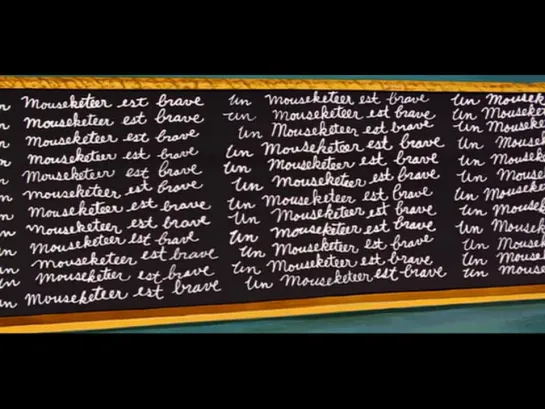 n Mouseketeer est brave Un Mouseketeer est brave Un Mousek
n Mouseketeer est brave Un Mouseketeer est brave Un Mouseke
n Mouseketeer est brave Un Mouseketeer est brave Un Mousek
n Mouseketeer est brave Un Mouseketeer est brave Un Mousek
n Mouseketeer est brave Un Mouseketeer est brave Un Mousek
n Mouseketeer est brave Un Mouseketeer est brave Un Mousek
n Mouseketeer est brave Un Mouseketeer est brave Un Mouseke
n Mouseketeer est brave Un Mouseketeer est brave Un Mousek
n Mouseketeer est brave Un Mouseketeer est brave Un Mouse
n Mouseketeer est brave Un Mouseketeer est brave Un Mouse
n Mouseketeer est brave Un Mouseketeer est brave Un Mouse
n Mouseketeer est brave Un Mouseketeer est brave Un Mouse